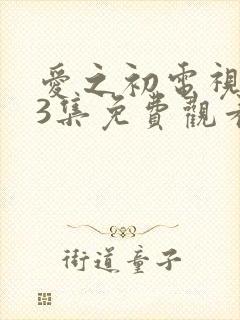 愛之初電視
3集免費觀看
街道童子